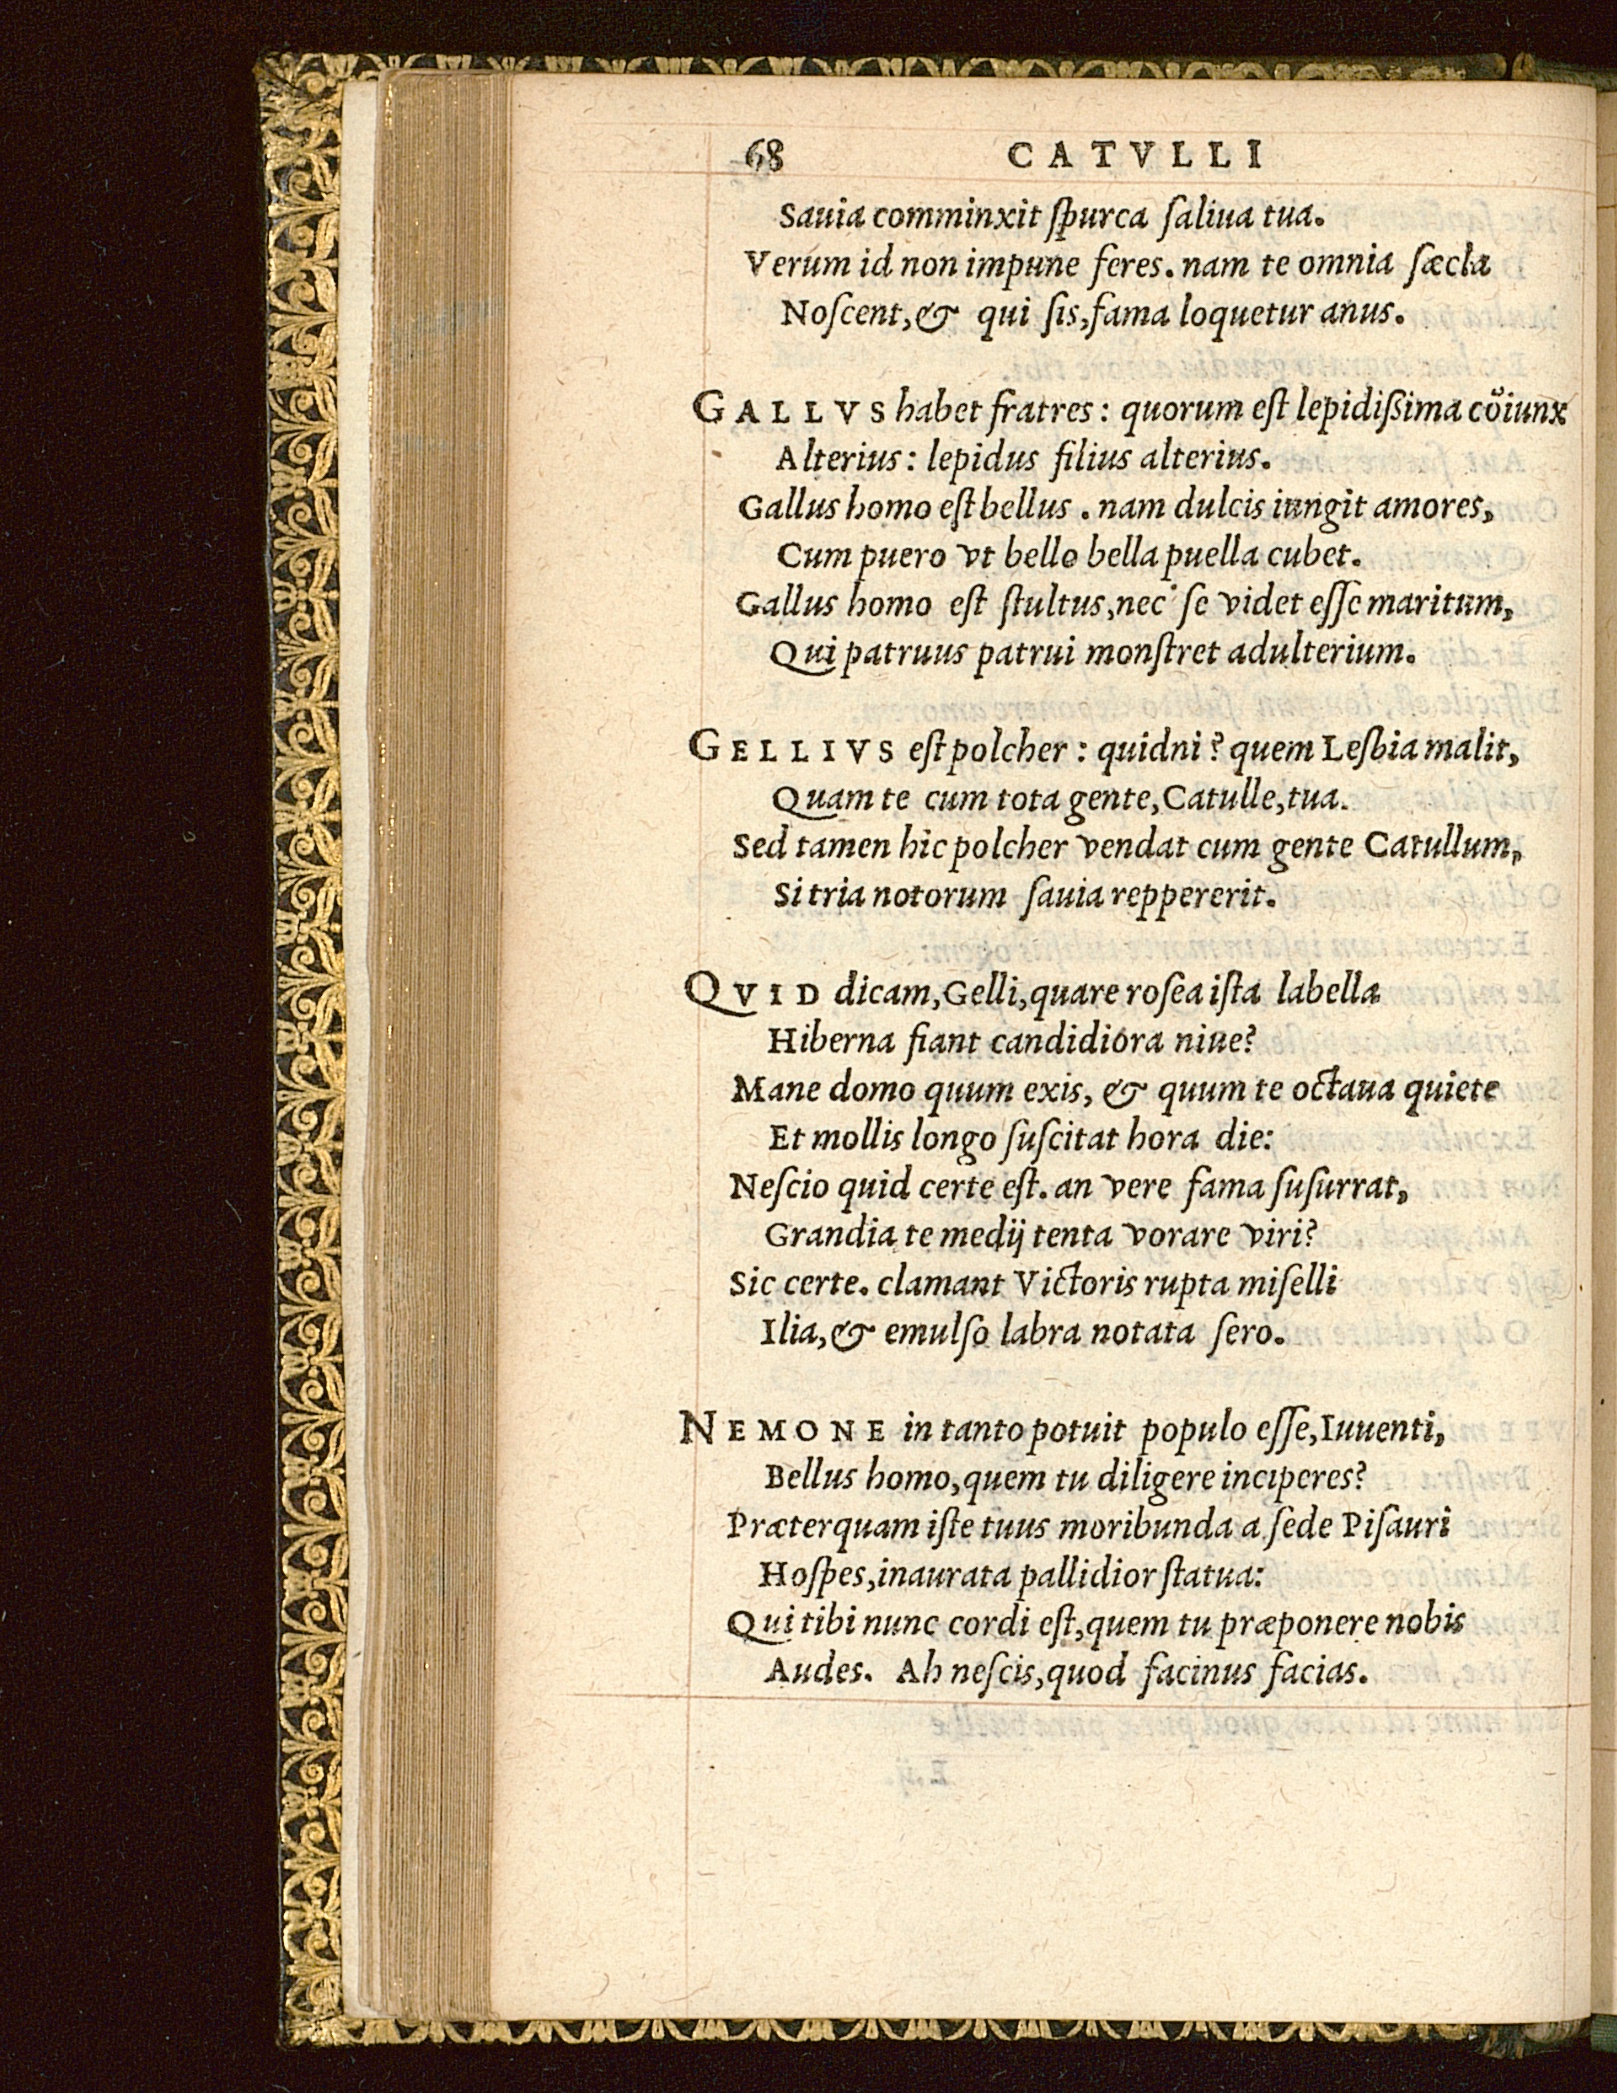 68 CATVLLI
Sauia comminxit ſpurca ſaliua tua.
Verum id non impune feres. nam te omnia ſæcla
Noſcent, & qui ſis, fama loquetur anus.
GALLVS habet fratres: quorum eſt lepidißima cöiunx
Alterius: lepidus filius alterius.
Gallus homo eſt bellus. nam dulcis iungit amores,
Cum puero vt bello bella puella cubet.
Gallus homo eſt ſtultus, nec ſe videt eſſe maritum,
Qui patruus patrui monſtret adulterium.
GELLIVS eſt polcher: quidni? quem Leſbia malit,
Quam te cum tota gente, Catulle, tua.
Sed tamen hic polcher vendat cum gente Catullum,
Si tria notorum ſauia reppererit.
QVID dicam, Gelli, quare roſea iſta labella
Hiberna fiant candidiora niue?
Mane domo quum exis, & quum te octaua quiete
Et mollis longo ſuſcitat hora die:
Neſcio quid certe eſt. an vere fama ſuſurrat,
Grandia te medij tenta vorare viri?
Sic certe. clamant Victoris rupta miſelli
Ilia, & emulſo labra notata ſero.
NEMONE in tanto potuit populo eſſe, Iuuenti,
Bellus homo, quem tu diligere inciperes?
Præterquam iſte tuus moribunda a ſede Piſauri
Hoſpes, inaurata pallidior ſtatua:
Qui tibi nunc cordi eſt, quem tu præponere nobis
Audes. Ah neſcis, quod facinus facias.